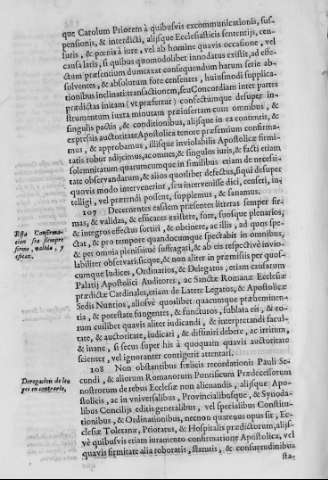 que Carolum Priorem à quibusvis excommunicationis, sus-
pensionis, & interdicti, alijsque Ecclesiasticis sententijs, cen-
suris, & pœnis à iure, vel ab homine quavis occasione, vel
causa latis, si quibus quomodolibet innodatus existit, ad effe-
ctum præsentium dumtaxat consequendum harum serie ab-
solventes, & absolutum fore censentes, huiusmodi supplica-
tionibus inclinati transactionem, seu Concordiam inter partes
prædictas initam (ut præfertur) confectumque desuper in-
strumentum iuxta minutam præinsertam cum omnibus, &
singulis pactis, & conditionibus, alijsque in ea contentis, &
expressis auctoritate Apostolica tenore præsentium confirma-
mus, & approbamus, illisque inviolabilis Apostolicæ firmi-
tatis robur adijcimus, acomnes, & singulos iuris, & facti etiam
solemnitatum quarumcumque in similibus etiam de necessi-
tate observandarum, & alios quoslibet defectus, si qui desuper
quovis modo intervenerint, seu intervenisse dici, censeri, in-
telligi, vel prætendi possent, supplemus, & sanamus.
107 Decernentes easdem præsentes litteras semper fir-
mas, & validas, & efficaces existere, fore, suosque plenarios,
& integros effectus sortiri, & obtinere, ac illis, ad quos spe-
ctat, & pro tempore quandocumque spectabit in omnibus,
& per omnia plenissimè suffragari, & ab eis respectivè invio-
labiliter observari: sicque, & non aliter in præmissis per quos-
cumque Iudices, Ordinarios, & Delegatos, etiam causarum
Palatij Apostolici Auditores, ac Sanctæ Romanæ Ecclesiæ
prædictæ Cardinales, etiam de Latere Legatos, & Apostolicæ
Sedis Nuntios, aliosvè quoslibet quacumque præeminen-
tia, & potestate fungentes, & functuros, sublata eis, & eo-
rum cuilibet quavis aliter iudicandi, & interpretandi facul-
tate, & auctoritate, iudicari, & diffiniri debere, ac irritum,
& inane, si secus super his à quoquam quavis auctoritate
scienter, vel ignoranter contigerit attentari.
108 Non obstantibus fœlicis recordationis Pauli Se-
cundi, & aliorum Romanorum Pontificum Prædecessorum
nostrorum de rebus Ecclesiæ non alienandis, alijsque Apo-
stolicis, ac in vniversalibus, Provincialibusque, & Synoda-
libus Concilijs editis generalibus, vel specialibus Constitu-
tionibus, & Ordinationibus, necnon quatenus opus sit, Ec-
clesiæ Toletanæ, Prioratus, & Hospitalis prædictorum, alijs-
vè quibusvis etiam iuramento confirmatione Apostolica, vel
quavis firmitate alia roboratis, statutis, & consuetudinibus
sta-
Esta Confirma-
cion sea siempre
firme, valida, y
eficaz.
Derogacion de le-
yes en contrario,